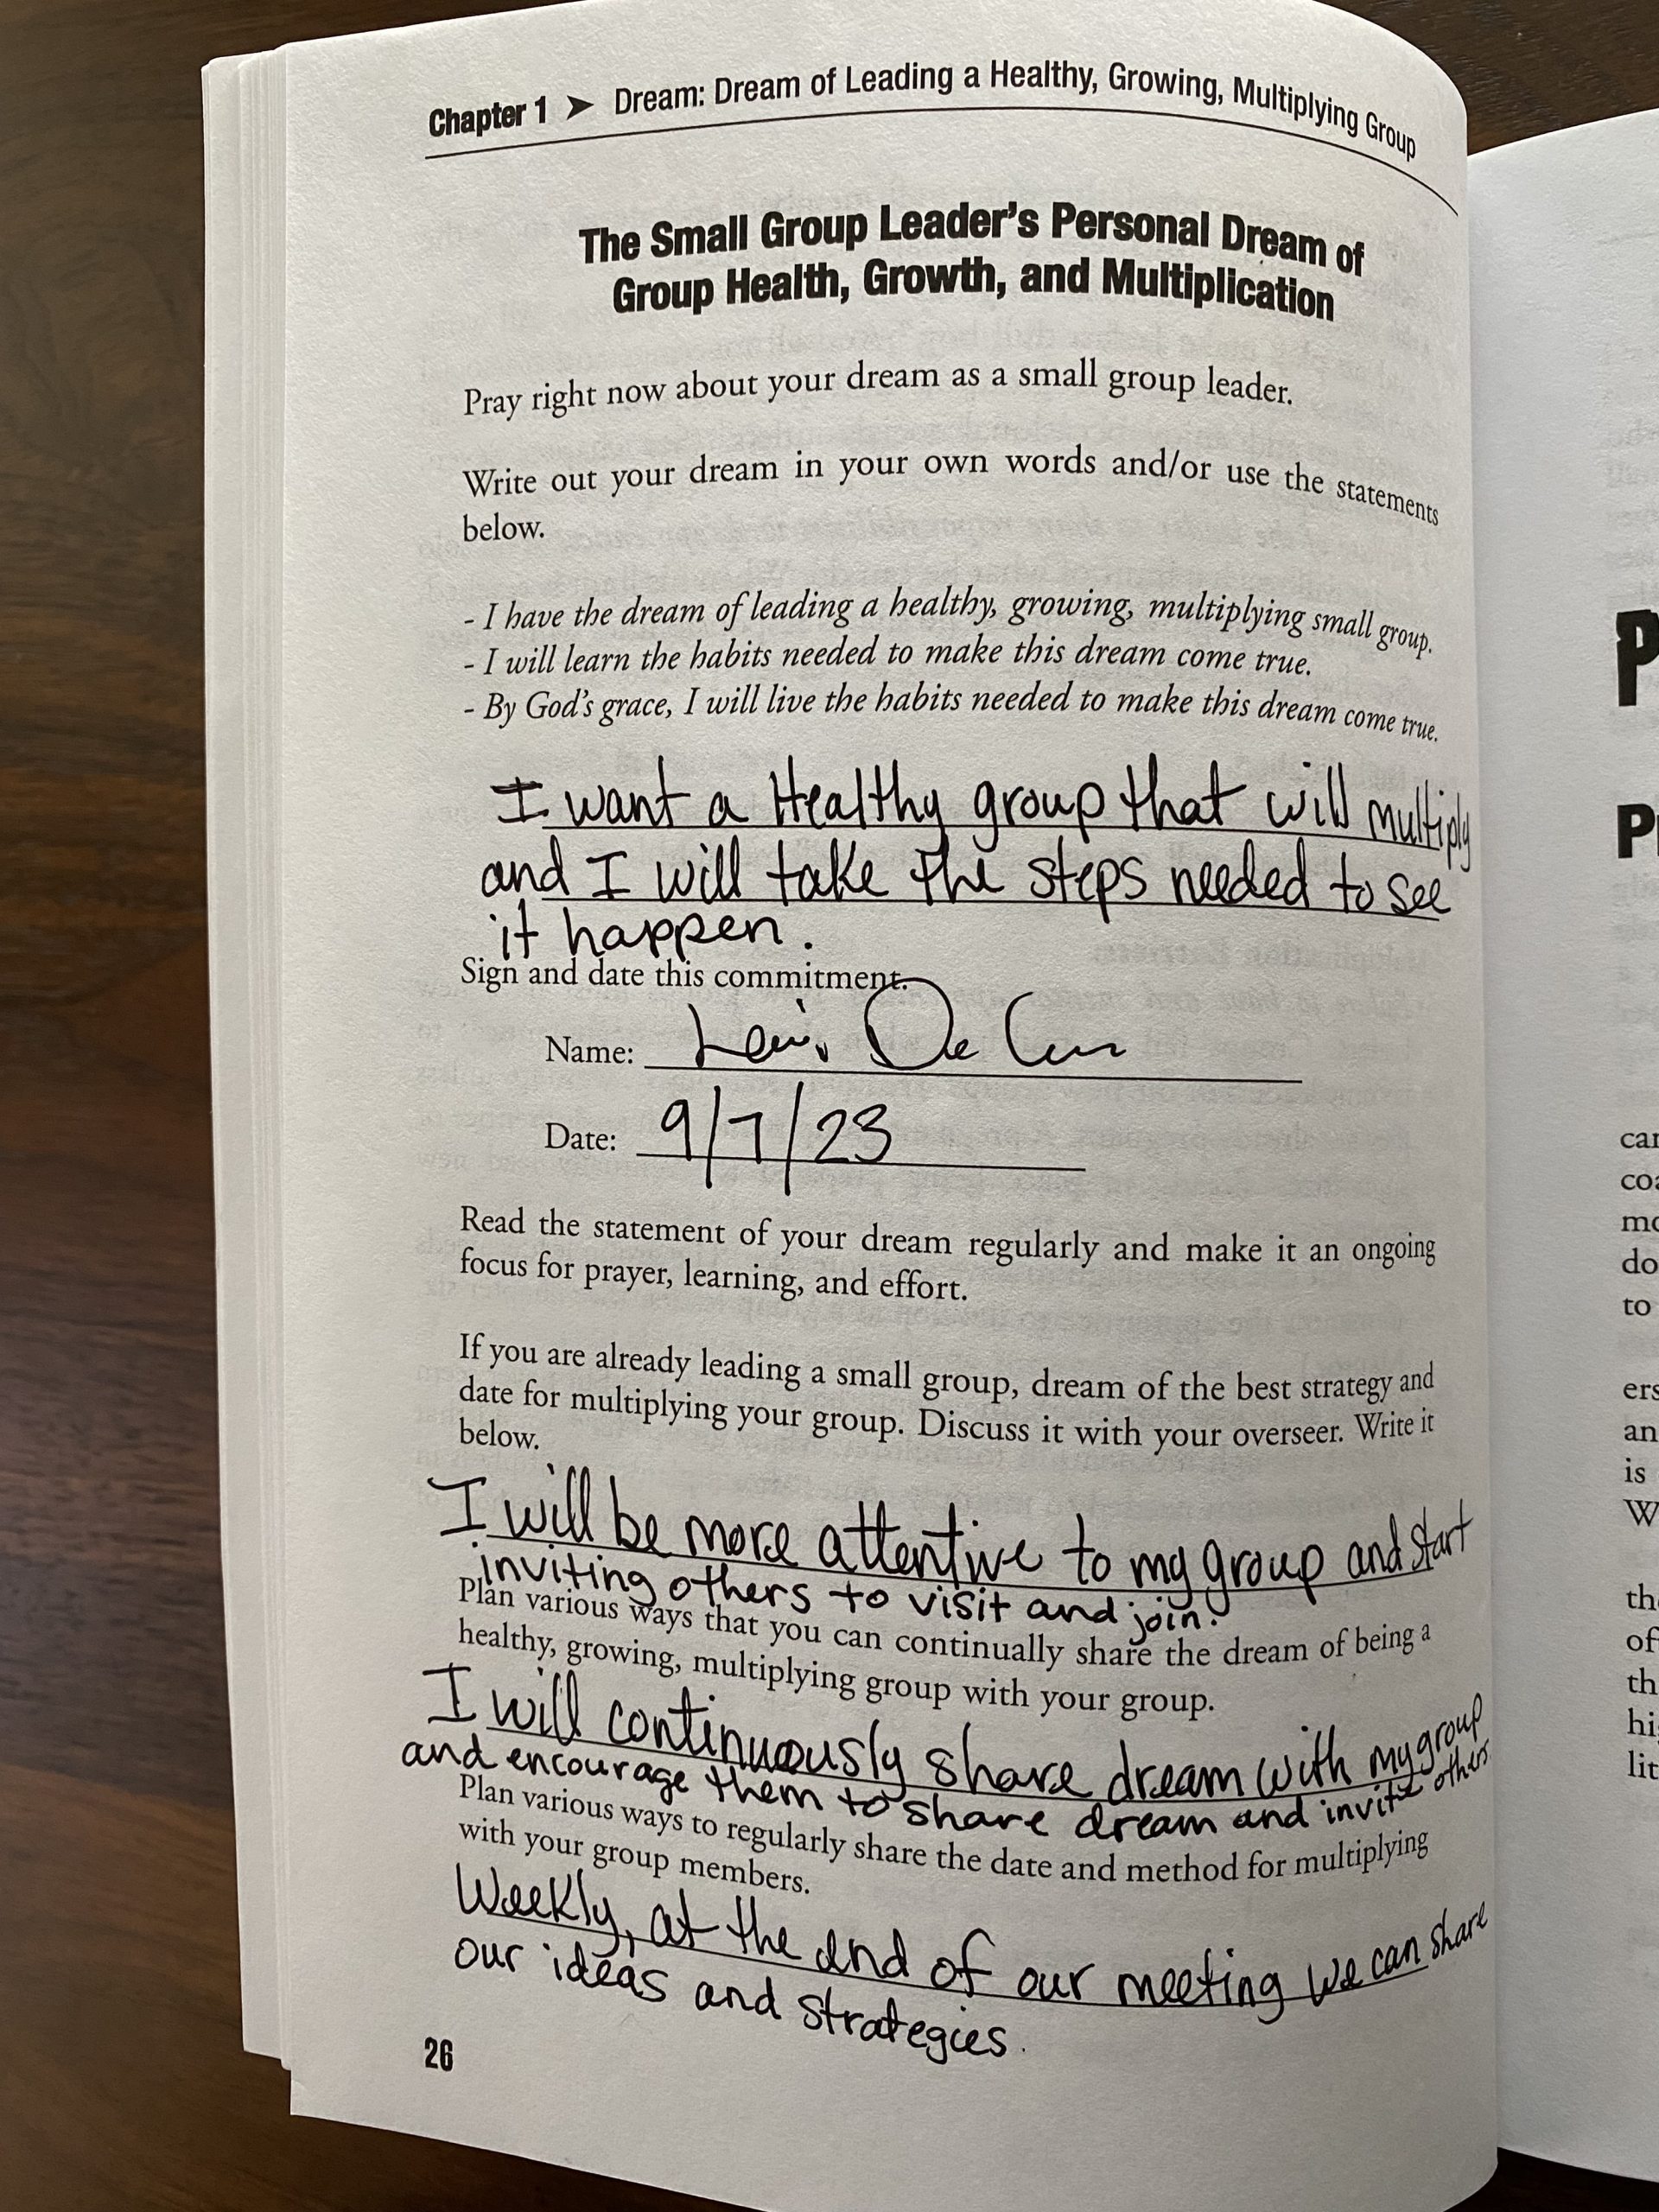 Chapter 1 ➤ Dream: Dream of Leading a Healthy, Growing, Multiplying Group
The Small Group Leader's Personal Dream of
Group Health, Growth, and Multiplication
Pray right now about your dream as a small group leader.
Write out your dream in your own words and/or use the statements
below.
- I have the dream of leading a healthy, growing, multiplying small group.
- I will learn the habits needed to make this dream come true.
- By God's grace, I will live the habits needed to make this dream come true.
I want a Healthy group that will multiply
and I will take the steps needed to see
it happen.
Sign and date this commitment.
Name: De
Date: 9/7/23
Read the statement of your dream regularly and make it an ongoing
focus for prayer, learning, and effort.
If you are already leading a small group, dream of the best strategy and
date for multiplying your group. Discuss it with your overseer. Write it
below.
I will be more attentive to my group and start
inviting others to visit and join.
Plan various ways that you can continually share the dream of being a
healthy, growing, multiplying group with your group.
I will continuously share dream with my group
and encourage them to share dream and invite others
Plan various ways to regularly share the date and method for multiplying
with your group members.
Weekly, at the end of our meeting we can share
our ideas and strategies.
26
P
car
do
to
ers
an
is
W
of